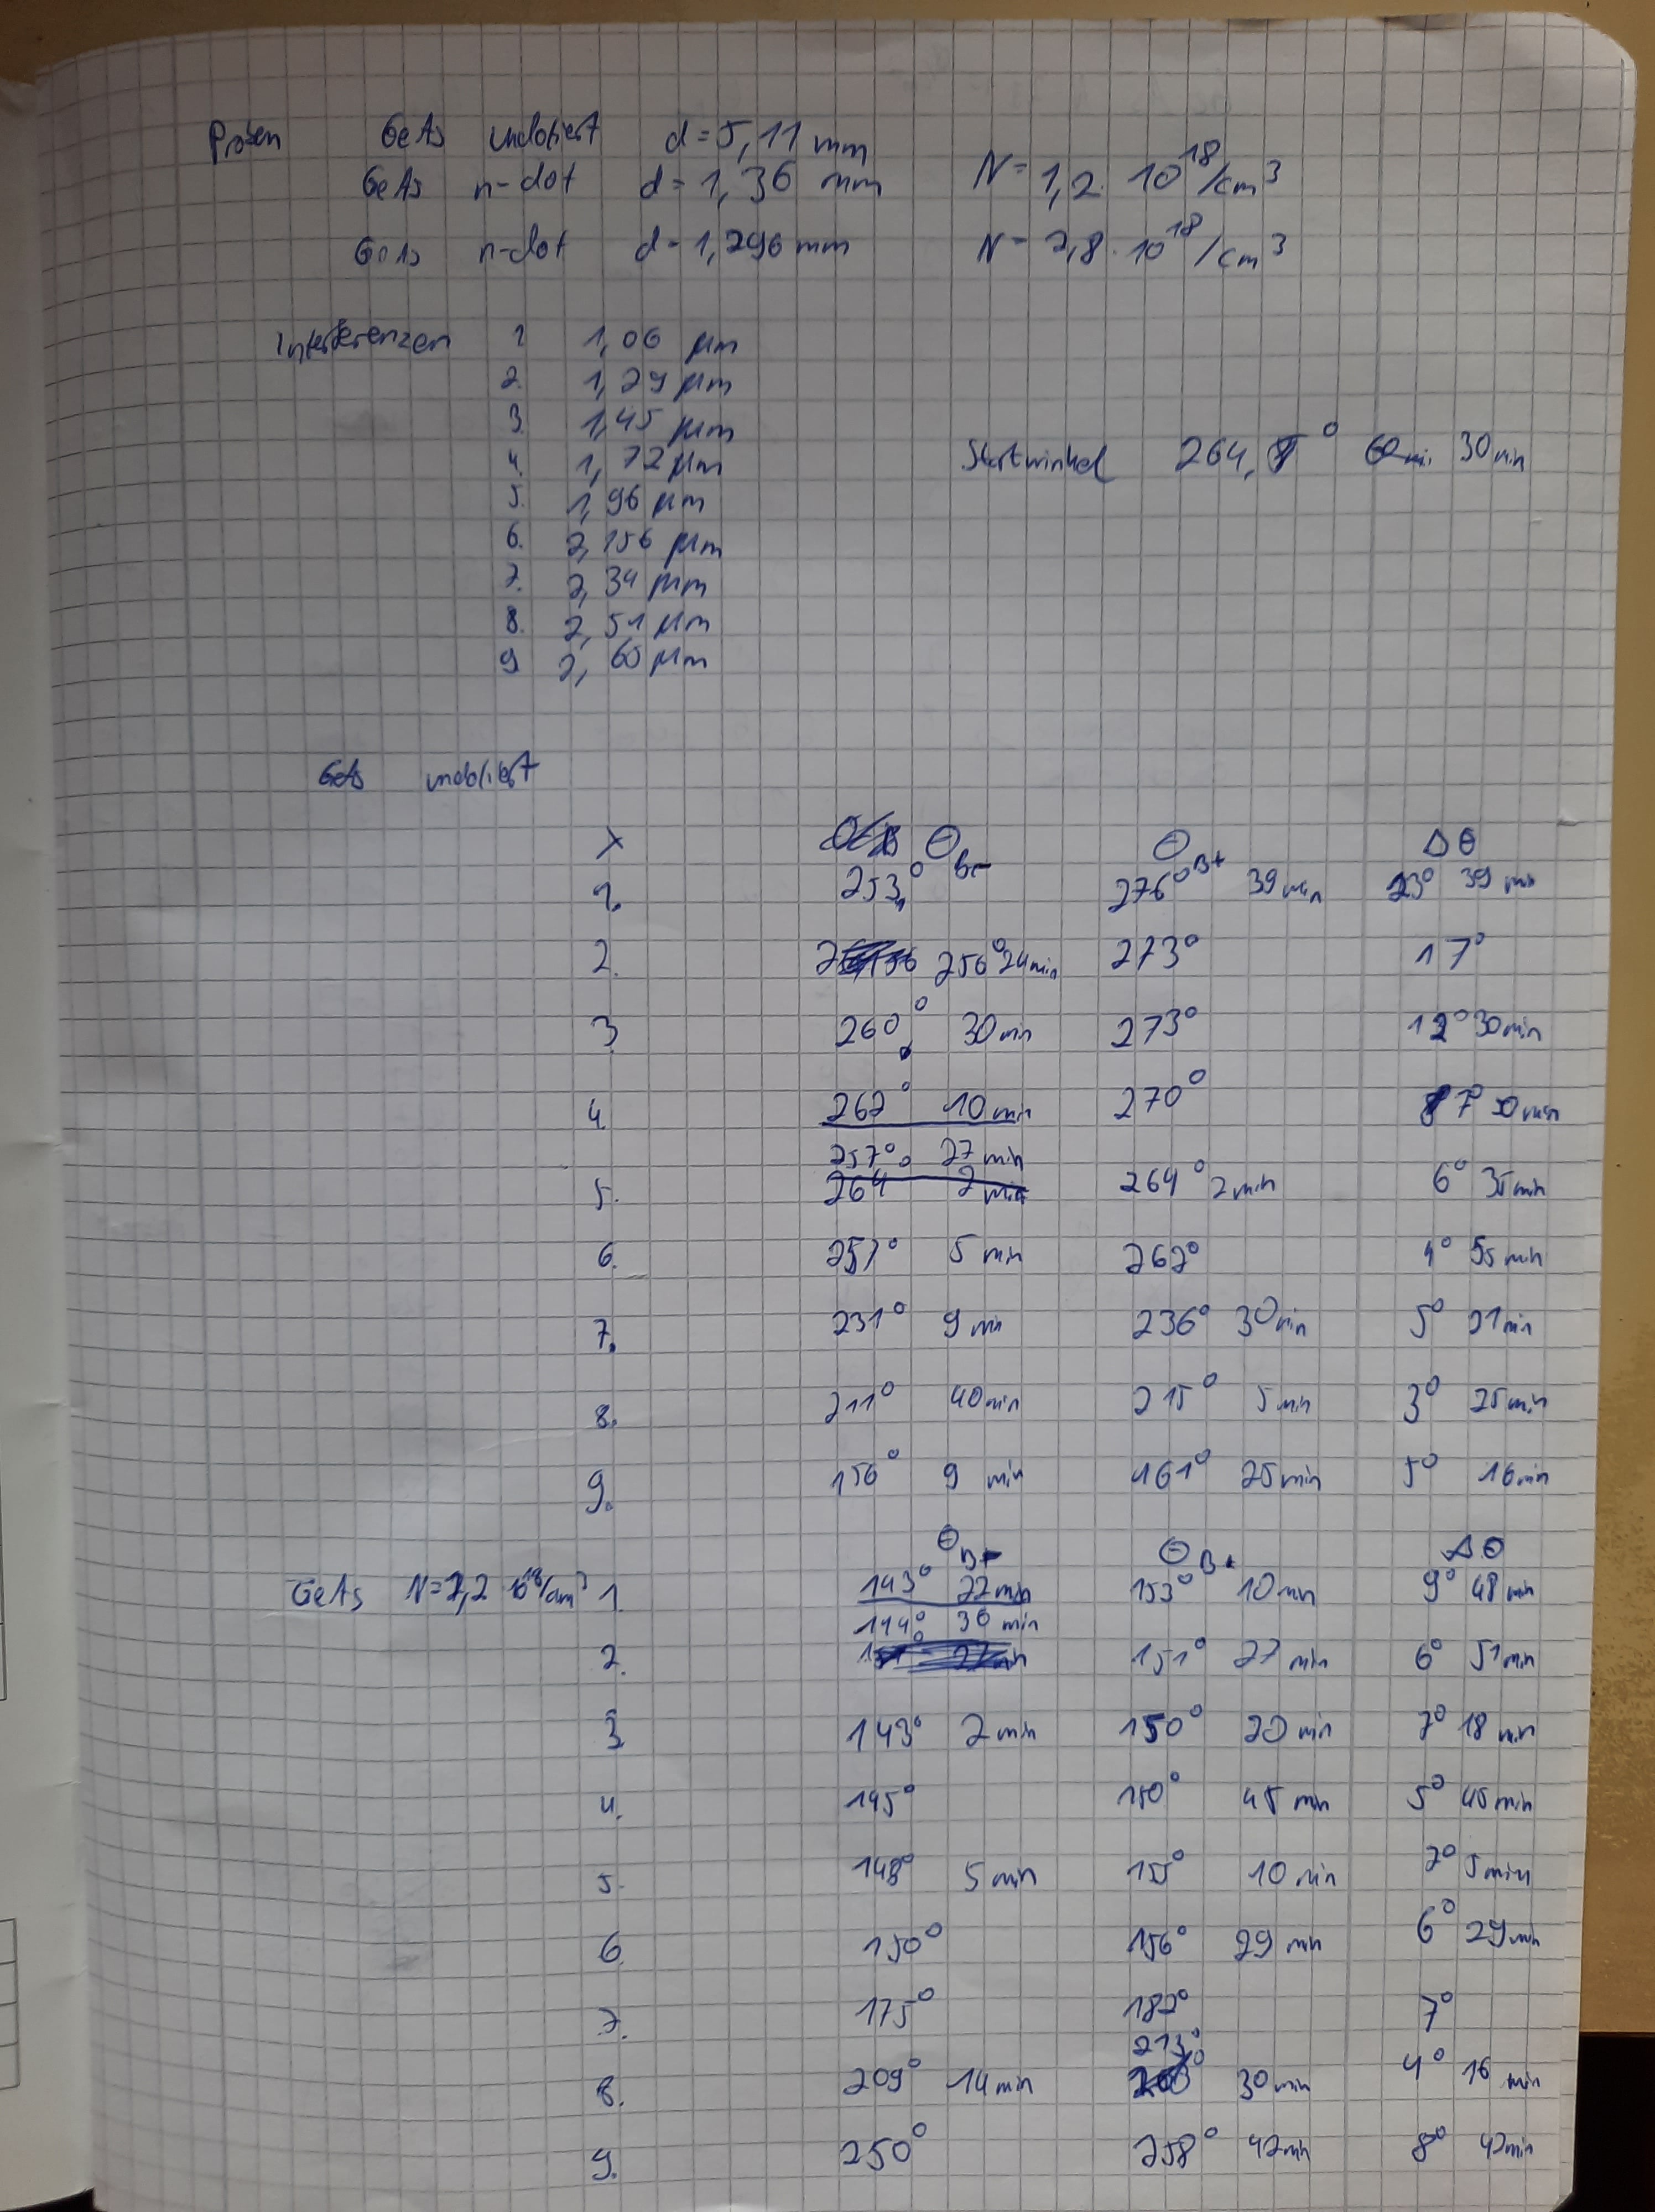 Proben GaAs undotiert d = 5,11 mm
GaAs n-dot d = 1,36 mm N = 1,2 · 10^18/cm^3
GaAs n-dot d = 1,296 mm N = 2,8 · 10^18/cm^3
Interferenzen 1 1,06 µm
2. 1,29 µm
3. 1,45 µm
Startwinkel 264,° 60 min 30 min
4. 1,72 µm
5. 1,96 µm
6. 2,156 µm
7. 2,34 µm
8. 2,51 µm
9 2,65 µm
GaAs undotiert
λ Θ B- Θ B+ ΔΘ
1. 253° 276° 39 min 23° 39 min
2. 256° 24 min 273° 17°
3. 260° 30 min 273° 12° 30 min
4. 262° 10 min 270° 7° 50 min
257° 27 min
5. 264 2 min 264° 2 min 6° 35 min
6. 257° 5 min 262° 4° 55 min
7. 231° 9 min 236° 30 min 5° 21 min
8. 211° 40 min 215° 5 min 3° 25 min
9. 156° 9 min 161° 25 min 5° 16 min
Θ B- Θ B+ ΔΘ
GaAs N = 1,2 10^18/cm^3 1. 143° 22 min 153° 10 min 9° 48 min
144° 36 min
2. 151° 27 min 6° 51 min
3. 143° 2 min 150° 20 min 7° 18 min
4. 145° 150° 45 min 5° 45 min
5. 148° 5 min 155° 10 min 7° 5 min
6. 150° 156° 29 min 6° 29 min
7. 175° 182° 7°
213°
8. 209° 14 min 30 min 4° 16 min
9. 250° 258° 42 min 8° 42 min